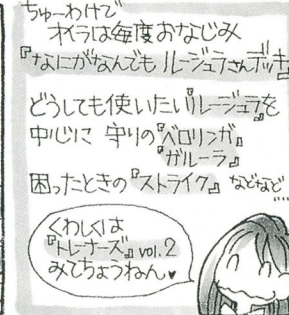 ちゅーわけで
オイラは毎度おなじみ
『なにがなんでもルージュラさんデッキ』
どうしても使いたい『ルージュラ』を
中心に 守りの『ベロリンガ』
『ガルーラ』
困ったときの『ストライク』などなど
……
くわしくは
『トレーナーズ』vol.2
みてちょうねん♥